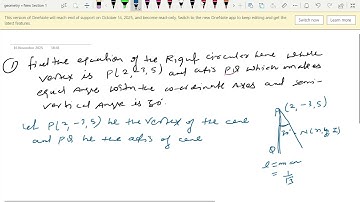 geometry – New Section 1
This version of OneNote will reach end of support on October 14, 2025, and become read-only. Switch to the new OneNote app to keep editing and get the latest features.
Switch now
Learn more
① find the equation of the Right circular cone whose
vertex is P(2,-3,5) and axis PQ which makes
equal Angle with the co-ordinate Axes and semi-
vertical Angle is 30.
Let P(2,-3,5) be the vertex of the cone
and PQ be the axis of cone
P (2,-3,5)
30
Q
l=m=n
= 1/√3